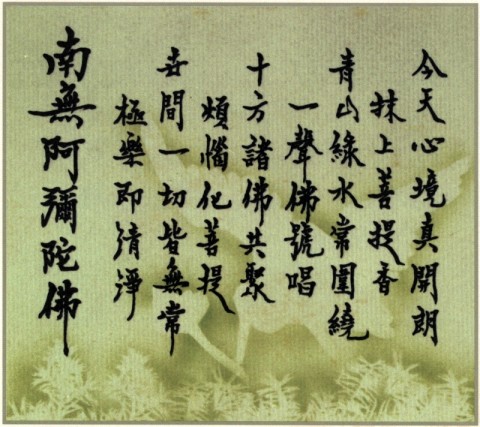 今天心境真開朗
抹上菩提香
青山綠水常圍繞
一聲佛號唱
十方諸佛共聚
煩惱化菩提
世間一切皆無常
極樂即清淨
南無阿彌陀佛